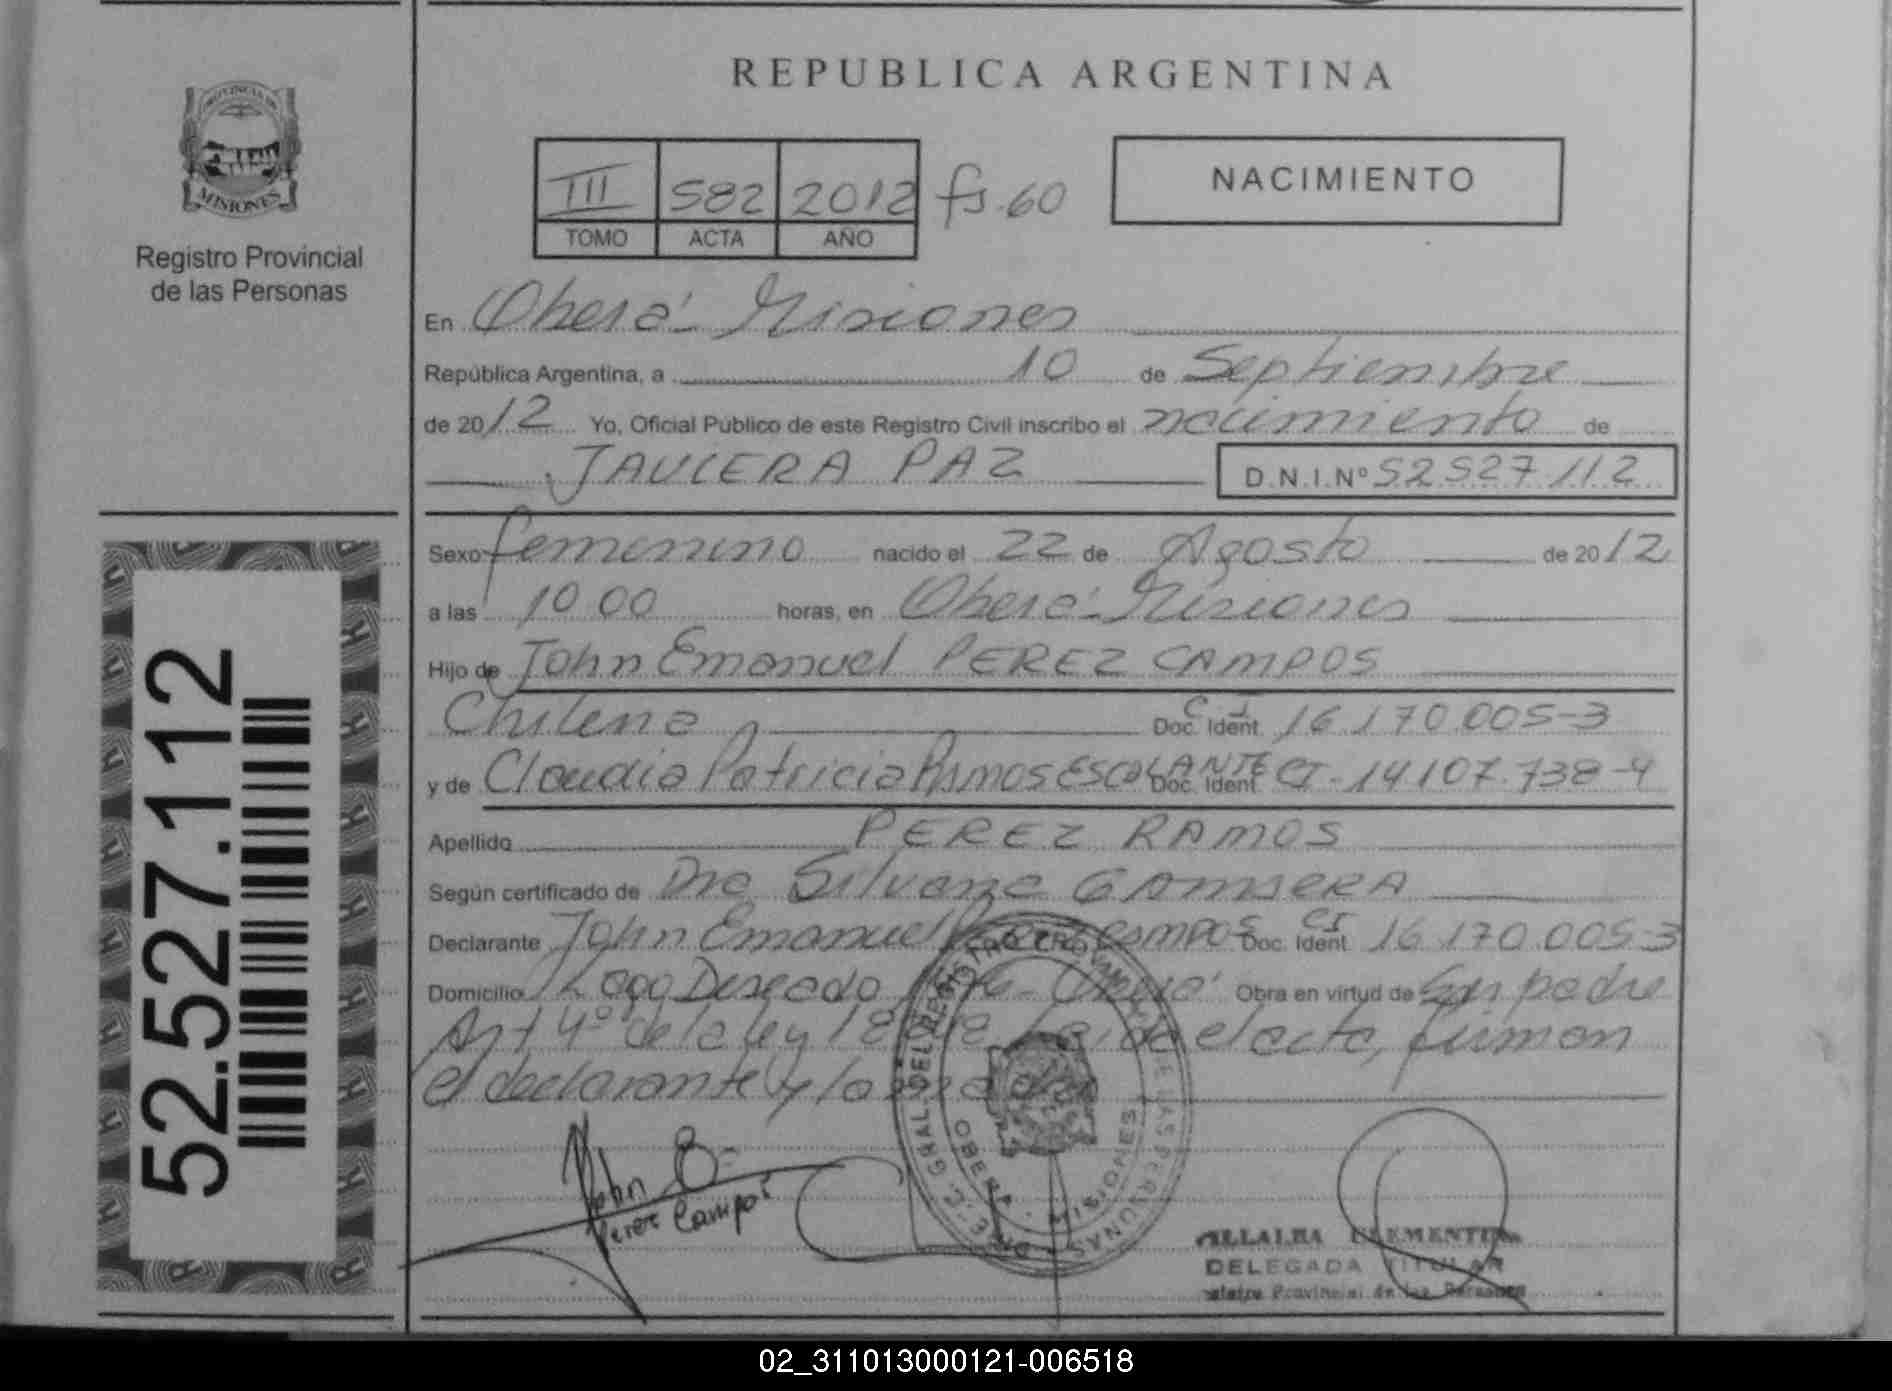 REPUBLICA ARGENTINA
PROVINCIA DE
MISIONES
Registro Provincial
de las Personas
III 582 2012 fs. 60
TOMO ACTA AÑO
NACIMIENTO
En Oberá - Misiones
República Argentina, a 10 de Septiembre
de 2012 Yo, Oficial Público de este Registro Civil inscribo el nacimiento de
JAVIERA PAZ D.N.I.Nº 52 527 112
Sexo femenino nacido el 22 de Agosto de 2012
a las 10 00 horas, en Oberá - Misiones
Hijo de John Emanuel PEREZ CAMPOS
Chilena Doc. Ident. C I 16.170.005-3
y de Claudia Patricia RAMOS ESCALANTE Doc. Ident. CI - 14.107.738-4
Apellido PEREZ RAMOS
Según certificado de Dra Silvana
Declarante John Emanuel Perez Campos Doc. Ident. CI 16.170.005-3
Domicilio Lago Deseado Oberá Obra en virtud de Ser padre
Art 4º de la ley Leída el acta, firman
el declarante y la madre
52.527.112
John
Perez Campos
DIREC. GRAL. DEL REGISTRO PROVINCIAL DE LAS PERSONAS
OBERA - MISIONES
DELEGADA TITULAR
Registro Provincial de las Personas
02_311013000121-006518